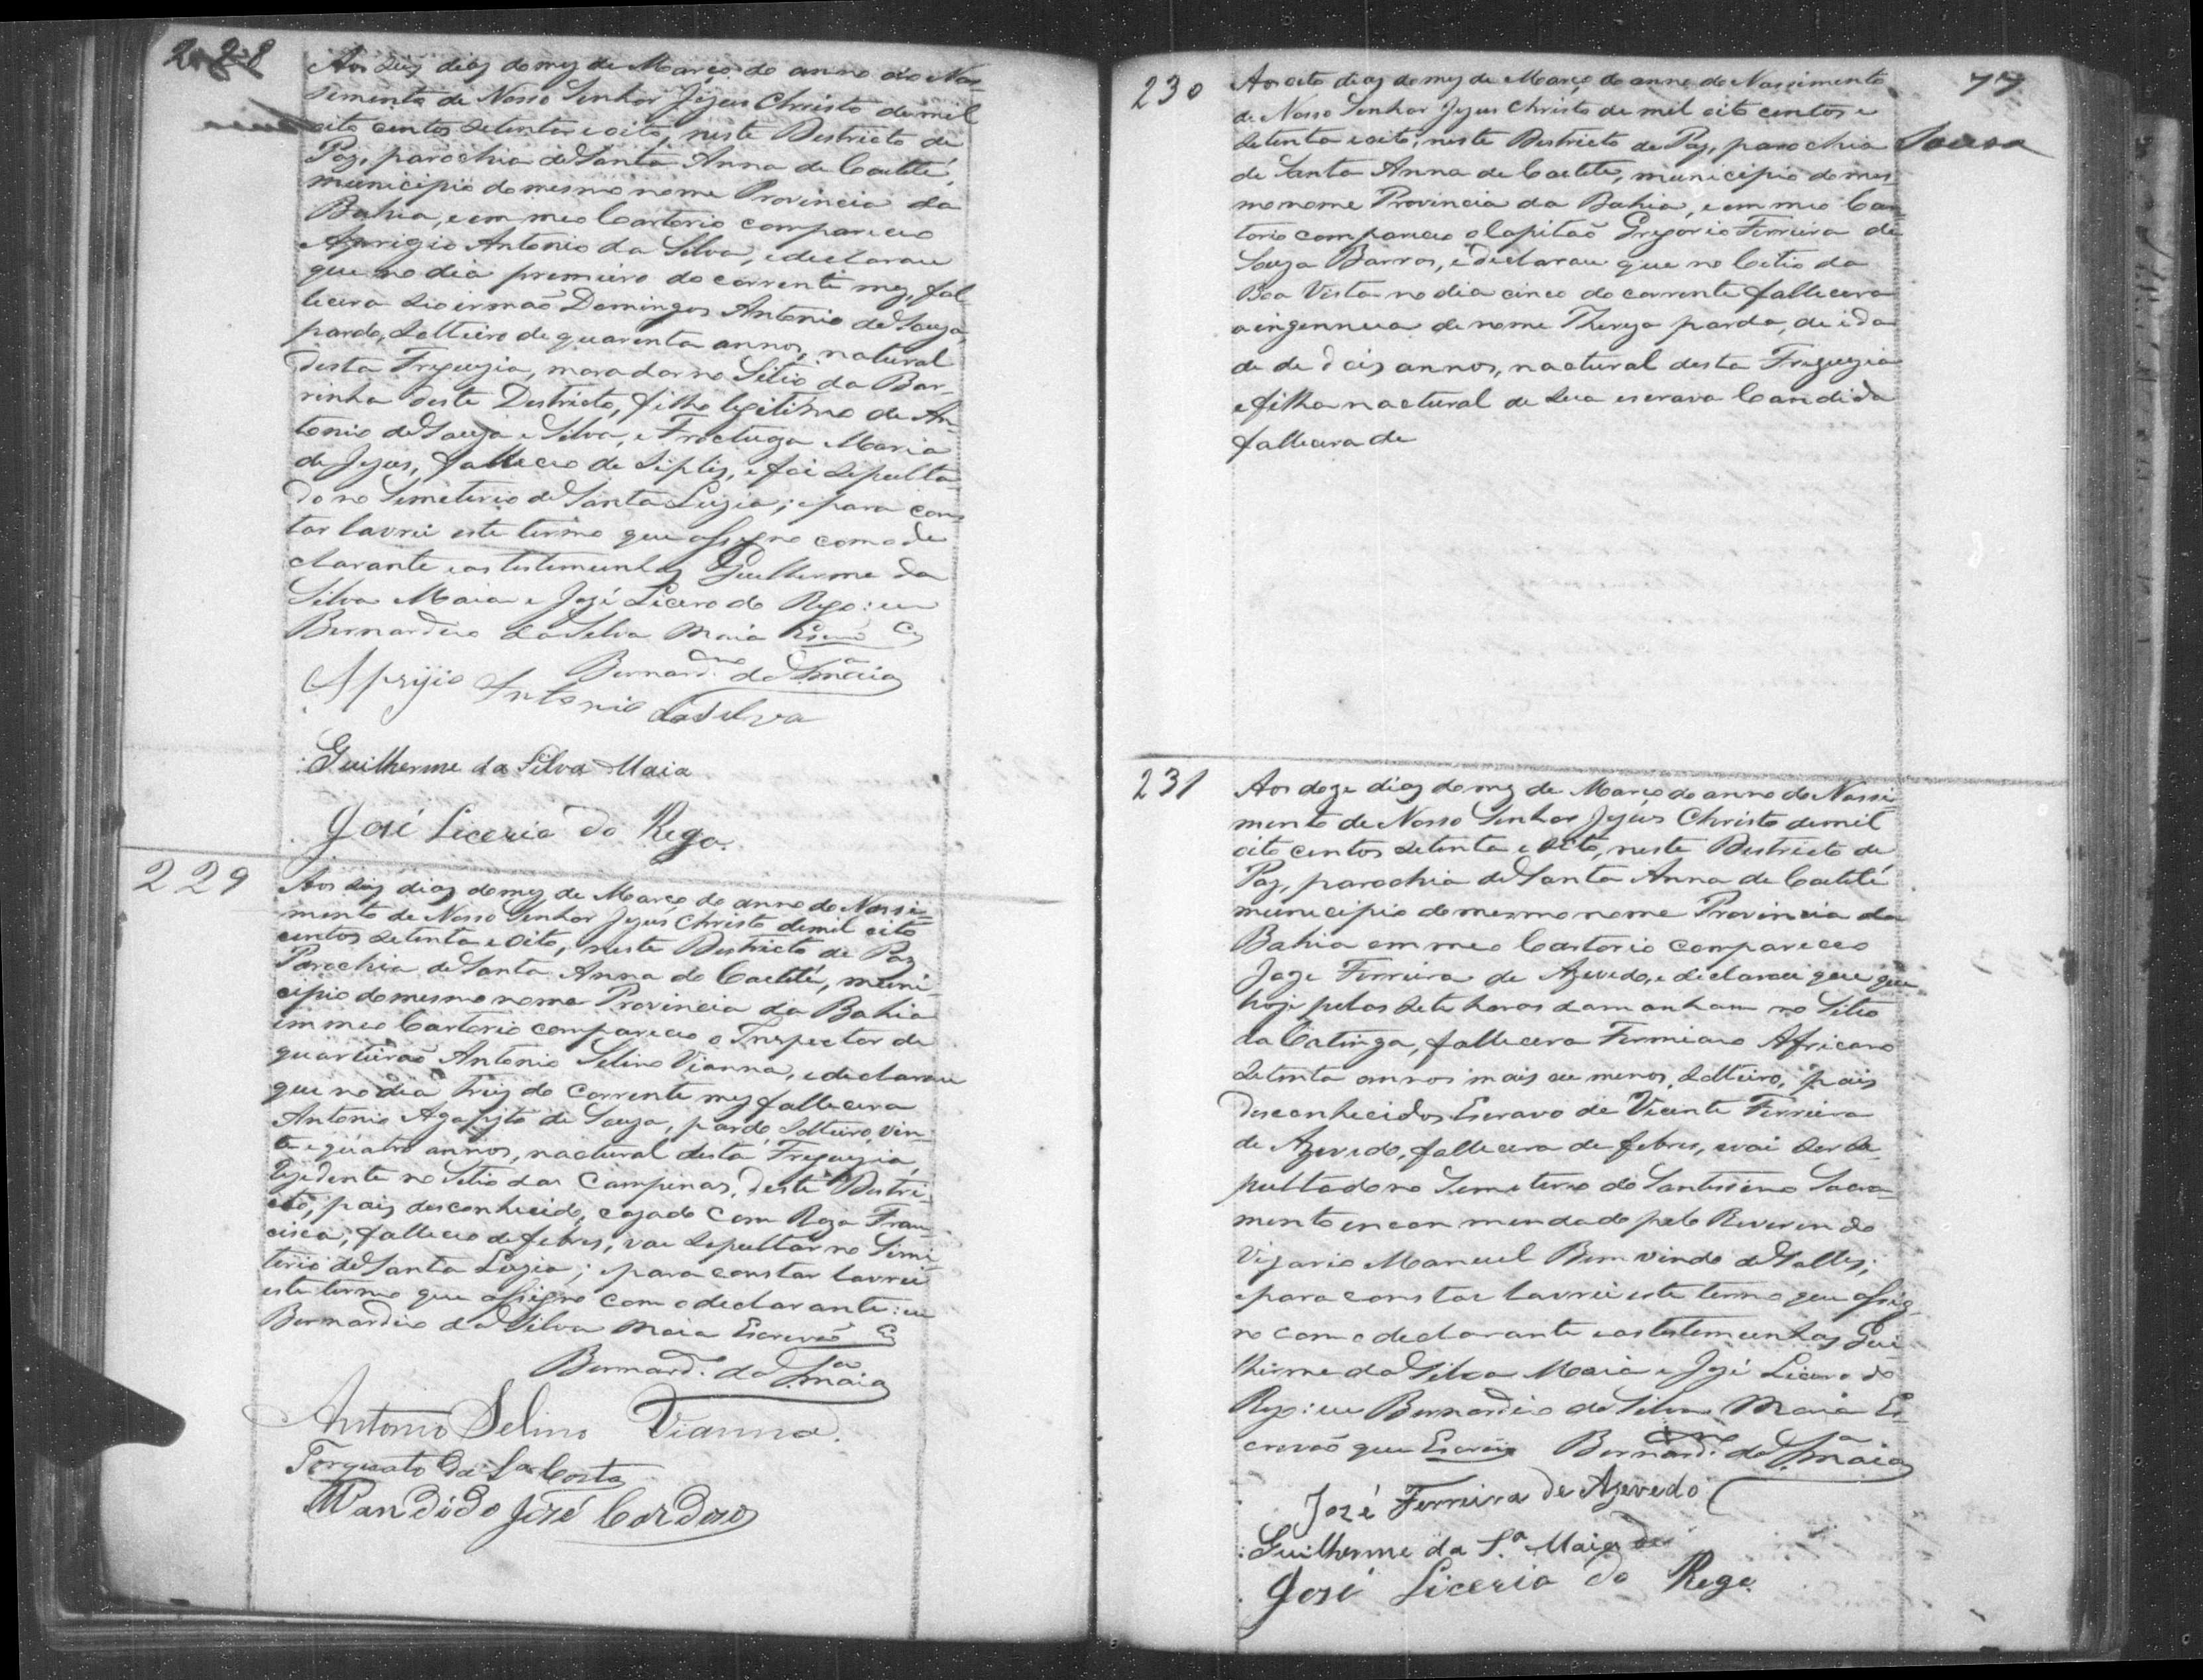 228
Aos seis dias do mez de Março do anno do Nas-
simento de Nosso Senhor Jezus Christo de mil
oito centos setenta e oito, neste Destricto de
Paz, parochia de Santa Anna de Caetité,
municipio do mesmo nome Provincia da
Bahia, e em meo Cartorio compareceo
Aprigio Antonio da Silva, e declarou
que no dia premiero do corrente mez, fal-
lecera seo irmaõ Domingos Antonio de Souza,
pardo, solteiro de quarenta annos, natural
desta Freguezia, morador no Sitio da Bar-
rinha deste Destricto, filho legitimo de An-
tonio de Souza e Silva, e Fructuoza Maria
de Jezus, falleceo de , e foi sepulta-
do no Simeterio de Santa Luzia; e para cons-
tar lavrei este termo que assigno com o de-
clarante e as testemunhas Guilherme da
Silva Maia e José Licero do Rego: eu
Bernardino da Silva Maia
Bernard.no da S.a Maia
Aprijio Antonio da Silva
Guilherme da Silva Maia
José Liceria do Rego.
229
Aos seis dias do mez de Março do anno do Nassi-
mento de Nosso Senhor Jezus Christo de mil oito
centos setenta e oito, neste Destricto de Paz
Parochia de Santa Anna do Caetité, muni-
cipio do mesmo nome Provincia da Bahia
em meo Cartorio compareceo o Inspector de
quarteiraõ Antonio Selino Vianna, e declarou
que no dia trez do corrente mez fallecera
Antonio Agapyto de Souza, pardo, solteiro, vin-
te e quatro annos, nactural desta Freguezia,
rezedente no Sitio das Campinas, deste Destri-
cto, pais desconhecido, cazado com Roza Fran-
cisca, falleceo de febres, vai sepultar no Simi-
terio de Santa Luzia; e para constar lavrei
este termo que assigno com o declarante: eu
Bernardino da Silva Maia Escrivaõ
Bernard. da S.a Maia
Antonio Selino Vianna.
Torquato da S.a Costa
Candido José Cardoso
77
230
Aos oito dias do mez de Março do anno do Nassimento
de Nosso Senhor Jezus Christo de mil oito centos e
setenta e oito, neste Destricto de Paz, parochia
de Santa Anna de Caetité, municipio do mes-
mo nome Provincia da Bahia, e em meo Car-
torio compareceo o Capitaõ Gregorio Ferreira de
Souza Barros, e declarou que no Citio da
Boa Vista no dia cinco do corrente fallecera
a ingennua de nome Thereza parda, de ida-
de de dois annos, nactural desta Freguezia
e filha nactural de sua escrava Candida
fallecera de
231
Aos doze dias do mez de Março do anno do Nassi-
mento de Nosso Senhor Jezus Christo de mil
oito centos setenta e oito, neste Destricto de
Paz, parochia de Santa Anna de Caetité
municipio do mesmo nome Provincia da
Bahia em meo Cartorio compareceo
Joze Ferreira de Azevedo, e declarou que que
hoje pelas sete horas da manham no Sitio
da Catinga, fallecera Firmiano Africano
setenta annos mais ou menos, solteiro, pais
desconhecidos Escravo de Vicente Ferreira
de Azevedo, fallecera de febres, e vai ser se-
pultado no Simeterio do Santissimo Sacra-
mento encommendado pelo Reverendo
Vigario Manuel Bemvindo de Salles;
e para constar lavrei este termo que assig-
no com o declarante e as testemunhas Gui-
lherme da Silva Maia e José Licero do
Rego: eu Bernardino da Silva Maia Es-
crivaõ que Escrevi Bernard.no da S.a Maia
Jozé Ferreira de Azevedo
Guilherme da S.a Maia
José Liceria do Rego.